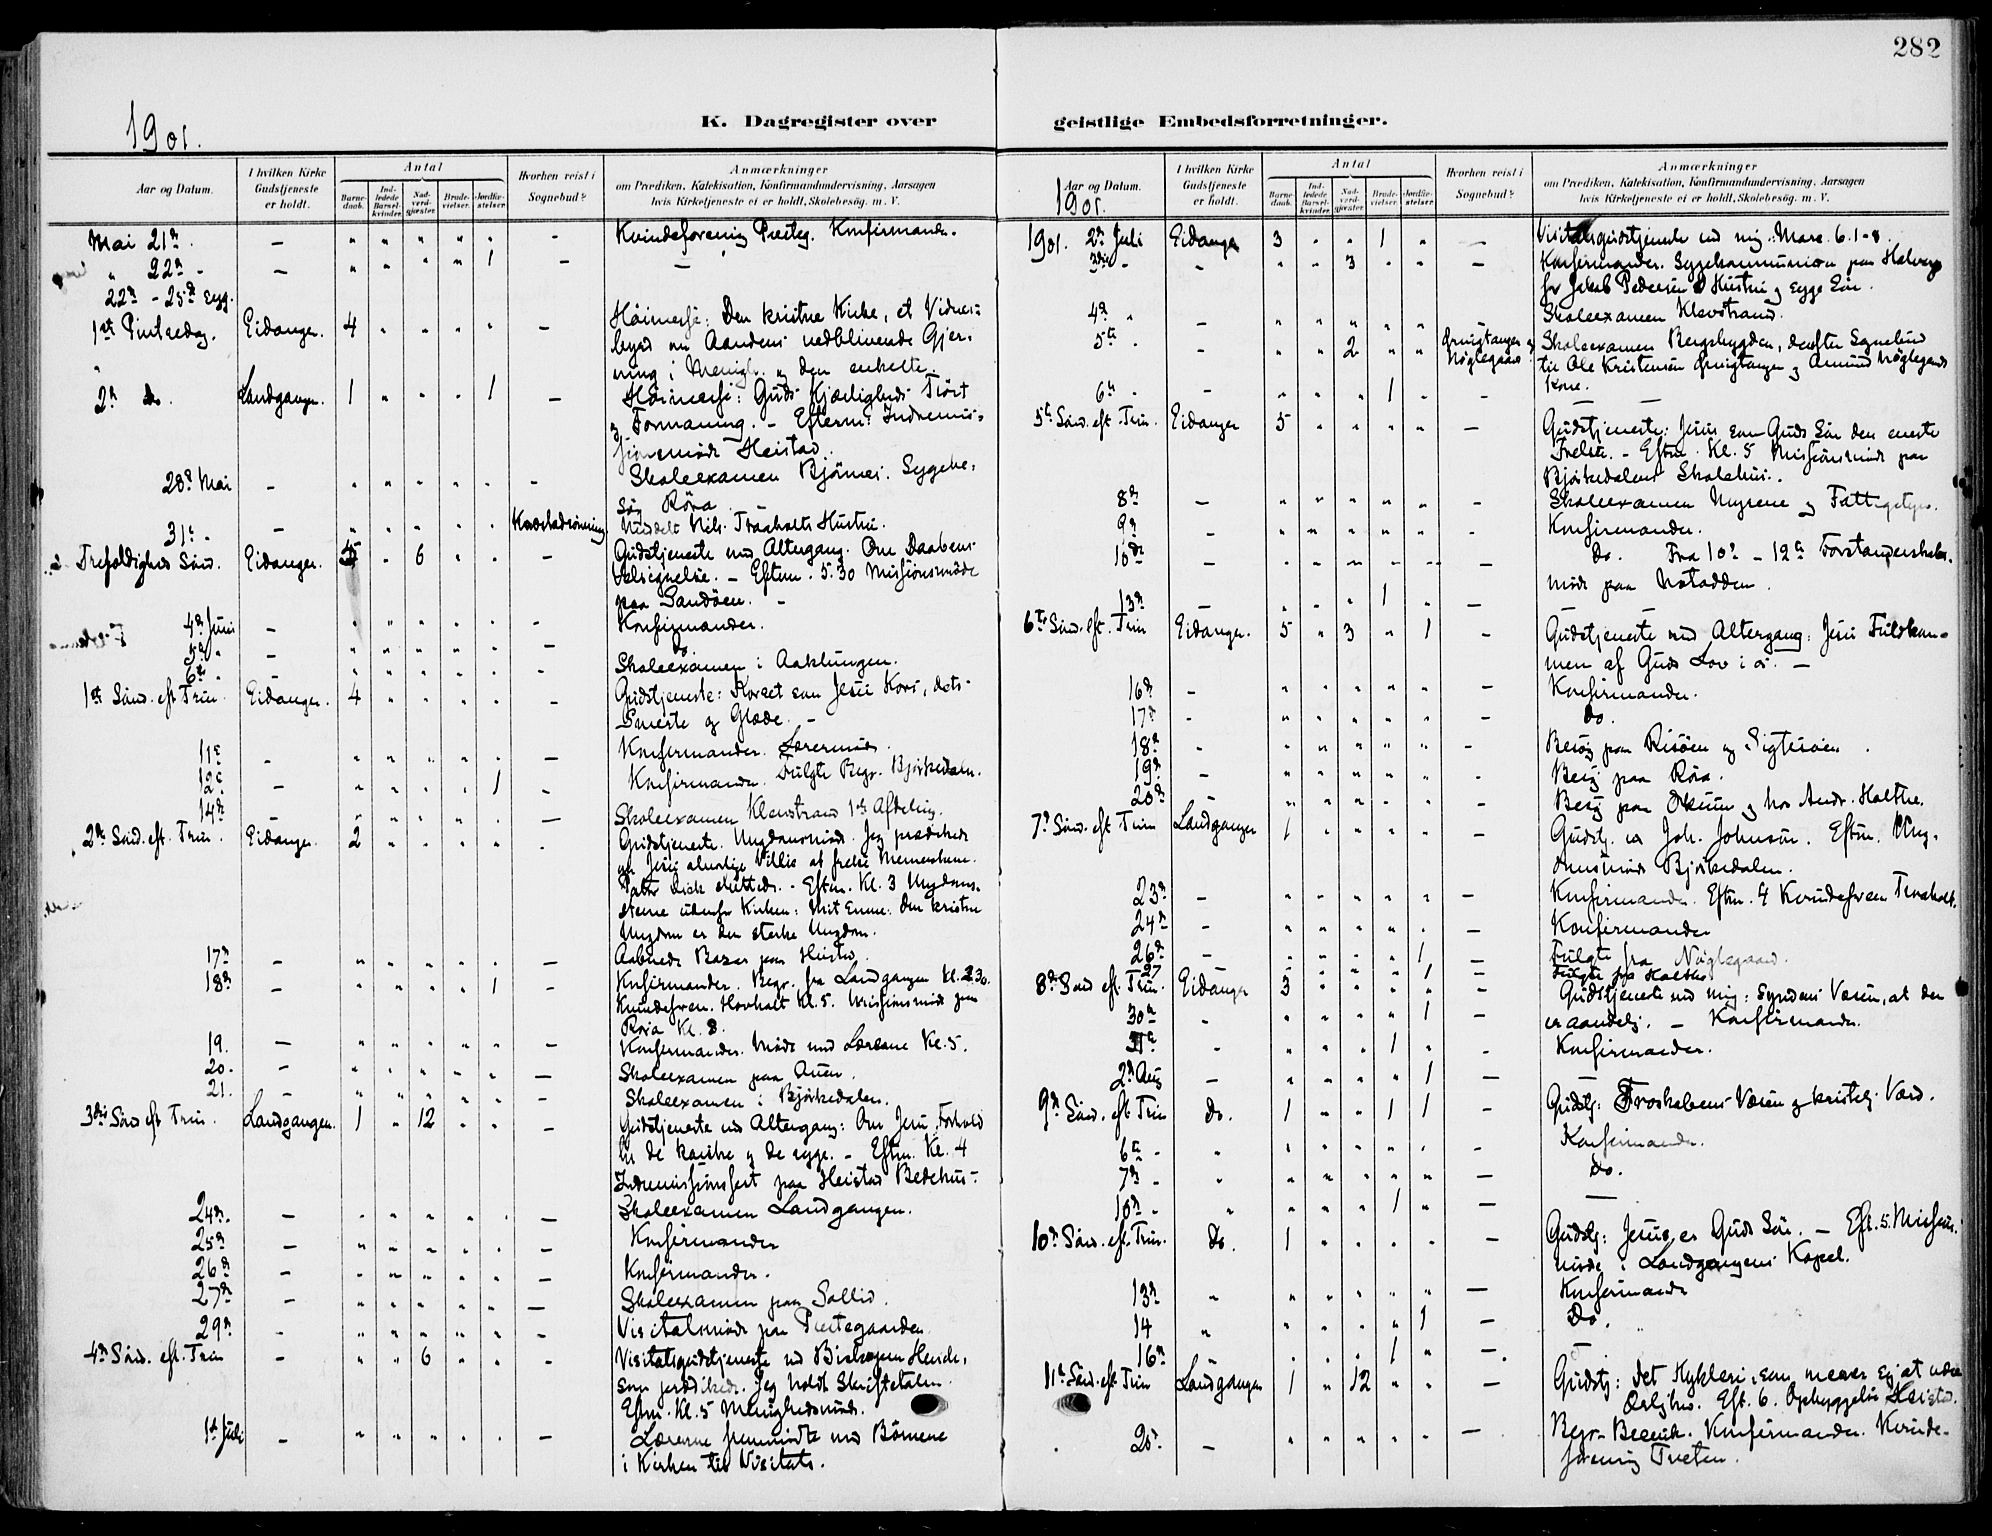 282
K. Dagregister over geistlige Embedsforretninger.
1901.
Aar og Datum. | I hvilken Kirke Gudstjeneste er holdt. | Antal | Barnedaab. | Indledede Barselkvinder. | Nadverdgjæster. | Brudevielser. | Jordfæstelser. | Hvorhen reist i Sognebud? | Anmærkninger om Prædiken, Katekisation, Konfirmandundervisning, Aarsagen hvis Kirketjeneste ei er holdt, Skolebesøg. m. V.
Mai 21de - " " " " " - Kvindeforening Presteg. Konfirmander.
" 22de - - " " " " 1 - —
22de - 25de syg.
1ste Pintsedag. Eidanger. 4 " " " " - Høimesse: Den kristne Kirke, et Vidnes-
byrd om Aandens vedblivende Gjer-
ning i Menigh. og den enkelte.
2den do. Landgangen. 1 " " " 1 - Høimesse: Guds Kjærligheds Trøst
og Formaning. - Efterm. Indremis-
sionsmøde Heistad.
28de Mai - " " " " " - Skoleexamen Bjørnes. Sygebe-
søg Röra. -
31te - - " " " " " Nils Traaholts Hustru.
Trefoldigheds Sönd. Eidanger. 5 " 6 " " - Gudstjeneste med Altergang. Om Daabens
Velsignelse. - Eftm. 5.30 Missionsmöde
paa Sandöen. -
4de Juni - " " " " " - Konfirmander.
5te " - " " " " " - do
6te " " " " " " - Skoleexamen i Aaklungen.
1ste Sönd. eft. Trin. Eidanger. 4 " " " " - Gudstjeneste: Korset som Jesu Kors, dets
Smerte og Glæde. -
11te - " " " " " - Konfirmander. Lærermöde.
12te - " " " " 1 - Konfirmander. Fulgte Begr. Bjørkedalen.
14de " " " " " - Skoleexamen Klevstrand 1ste Afdeling.
2den Sönd. eft. Trin. Eidanger. 2 " " " " . Gudstjeneste. Ungdomsmöde. Jeg prædikede
om Jesu alvorlige Villie at frelse Menneskene.
- Eftm. Kl. 3 Ungdoms-
stevne udenfor Kirken: Mit Emne: Den kristne
Ungdom er den sterke Ungdom.
17de - " " " " " - Aabnede Bazar paa Heistad.
18de - " " " " 1 - Konfirmander. Begr. fra Landgangen Kl. 2.30.
Kvindeforen. Hovholt Kl. 5. Missionsmöde paa
Röra Kl. 8.
19. - " " " " " - Konfirmander. Möde med Lærerne Kl. 5.
20. - " " " " " - Skoleexamen paa Auen.
21. - " " " " " - Skoleexamen i Bjørkedalen.
3die Sönd eft Trin. Landgangen. 1 " 12 " " - Gudstjeneste med Altergang: Om Jesu Forhold
til de karske og de syge. - Eftm. Kl. 4
Indremissionsfest paa Heistad Bedehus -
24de. - " " " " " - Skoleexamen Landgangen.
25de - " " " " " - Konfirmander
26de - " " " " " - Konfirmander.
27de - " " " " " - Skoleexamen paa Sollid.
29de - " " " " " - Visitatsmöde paa Prestegaarden.
4de Sönd. eft. Trin - " " 6 " " - Visitatsgudstjeneste ved Biskopen Heuch,
som prædikede. Jeg holdt Skriftetalen.
Eftm. Kl. 5 Menighedsmöde.
1ste Juli - " " " " " - Lærerne fremmödte med Börnene
i Kirken til Visitats.
1901.
Aar og Datum. | I hvilken Kirke Gudstjeneste er holdt. | Antal | Barnedaab. | Indledede Barselkvinder. | Nadverdgjæster. | Brudevielser. | Jordfæstelser. | Hvorhen reist i Sognebud? | Anmærkninger om Prædiken, Katekisation, Konfirmandundervisning, Aarsagen hvis Kirketjeneste ei er holdt, Skolebesøg. m. V.
1901. 2den Juli Eidanger 3 " " 1 " - Visitatsgudstjeneste ved mig: Marc. 6. 1-8.
3die " - " " 3 " " - Konfirmander. Sygekommunion paa
for Jakob Pedersen Hustru og syge Sön.
4de " - " " " " " Skoleexamen Klevstrand.
5te " - " " 2 " " Ørvigtangen og Nøglegaard Skoleexamen Bergsbygden, derefter Sognebud
til Ole Kristensen Ørvigtangen og Amund Nøglegaards
Kone.
6te " - " " " 1 " - —
5te Sönd. eft. Trin. Eidanger 5 " " " " - Gudstjeneste: Jesus som Guds Sön den eneste
Frelse. - Eftm. Kl. 5 Missionsmöde paa
Bjørkedalens Skolehus.
8de - " " " " " - Skoleexamen Nyrene og
9de - " " " " " - Konfirmander.
10de - " " " " " - Do. Fra 10de - 12te Forstanderskabs-
möde paa Notodden.
13de - " " " 1 " - —
6te Sönd. eft. Trin Eidanger. 5 " 3 " 1 - Gudstjeneste med Altergang: Jesu Fuldkom-
men af Guds Lov i os. -
16de - " " " " " - Konfirmander.
17de - " " " " " - Do.
18de - " " " " " - Besög paa Risöen og Sigtesöen.
19de - " " " " " - Besög paa Röra.
20de - " " " " " - Besög paa og hos Andr. Holtke.
7de Sönd. eft Trin Landgangen 1 " " " " - Gudstj. ved Joh. Johnsen. Eftm. Ung-
domsmöde Bjørkedalen.
23de - " " " " " - Konfirmander. Eftm. 4 Kvindeforen Traaholt.
24de - " " " " " - Konfirmander
26de - " " " " 1 - Fulgte fra Nøglegaard.
27 - " " " " 1 - Fulgte fra Holtke
8de Sönd eft. Trin. Eidanger 3 " " " " - Gudstjeneste ved mig: Syndens Væsen, at den
er aandelig. -
30te - " " " " 1 - Konfirmander.
31te - " " " 1 " - Konfirmander.
2den Aug - " " " " 1 - —
9de Sönd. eft Trin Do. 1 " " 1 1 - Gudstj: Troskabens Væsen og kristelig Værd.
6te - " " " " " " - Konfirmander.
7de - " " " " " " - Do.
10de - " " " " 1 " - —
10de Sönd. eft. Trin. Do. 1 " " " " - Gudstj: Jesus er Guds Sön. - Eft. 5. Missions-
möde i Landgangens Kapel.
13de " " " " " " - Konfirmander
14 " " " " " 1 - Do.
16de " " " 1 " - —
11te Sönd. eft Trin Landgangen 1 " 12 " " - Gudstj: Det Hykleri, som mener sig at være
Eft. 6. Opbyggelse Heistad.
20de - " " " " " - Begr. Konfirmander. Kvinde-
forening Tveten.